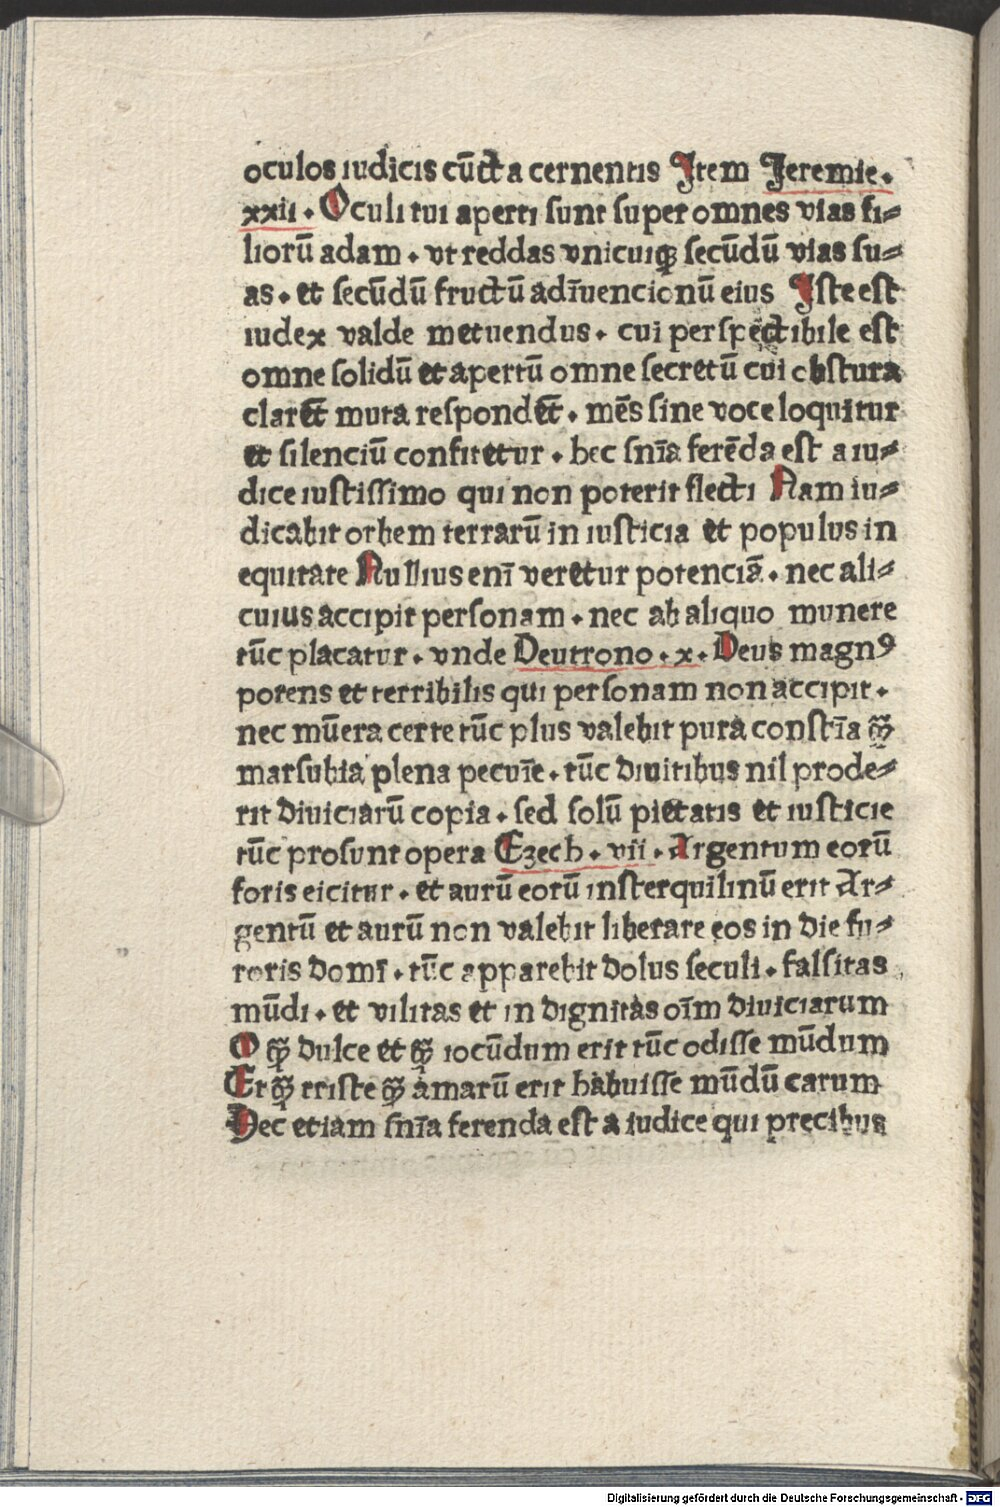 oculos iudicis cūcta cernentis Item Jeremie.
xxii. Oculi tui aperti sunt super omnes vias fi⸗
liorū adam. vt reddas vnicuiqꝫ secūdū vias su⸗
as. et secūdū fructū adīuencionū eius Iste est
iudex valde metuendus. cui perspēctibile est
omne solidū et apertū omne secretū cui obstura
claret̄ muta respondet̄. mēs sine voce loquitur
et silenciū confitetur. hec snīa ferēda est a iu⸗
dice iustissimo qui non poterit flecti Nam iu⸗
dicabit orbem terrarū in iusticia et populus in
equitate Nullius enī veretur potenciā. nec ali⸗
cuius accipit personam. nec ab aliquo munere
tūc placatur. vnde Deutrono. x. Deus magnꝰ
potens et terribilis qui personam non accipit.
nec mūera certe tūc plus valebit pura constīa qꝫ̄
marsubia plena pecuīe. tūc diuitibus nil prode⸗
rit diuiciarū copia. sed solū pietatis et iusticie
tūc prosunt opera Ezech. vii. Argentum eorū
foris eicitur. et aurū eorū insterquilinū erit Ar⸗
gentū et aurū non valebit liberare eos in die fu⸗
roris domī. tūc apparebit dolus seculi. falsitas
mūdi. et vilitas et in dignitas oīm diuiciarum
O qꝫ̄ dulce et qꝫ̄ iocūdum erit tūc odisse mūdum
Et qꝫ̄ triste qꝫ̄ amarū erit habuisse mūdū carum
Hec etiam snīa ferenda est a iudice qui precibus
Digitalisierung gefördert durch die Deutsche Forschungsgemeinschaft - DFG